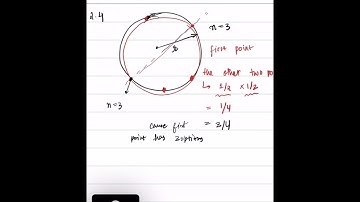 2.4
n=3
first point
the other two po
↳ 1/2 × 1/2
= 1/4
n=3
cause first = 3/4
point has 3 options